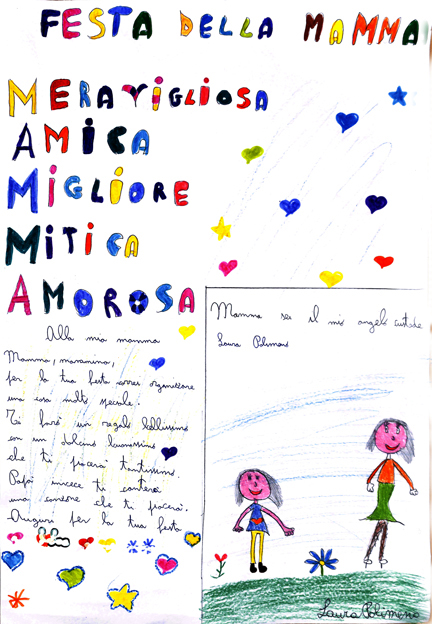 FESTA DELLA MAMMA
MERAVIGLIOSA
AMICA
MIGLIORE
MITICA
AMOROSA
Alla mia mamma
Mamma, mammina,
per la tua festa vorrei organizzare
una cosa molto speciale.
Ti farò un regalo bellissimo
con un dolcino buonissimo
che ti piacerà tantissimo.
Papà invece ti canterà
una canzone che ti piacerà.
Auguri per la tua festa
Mamma sei il mio angelo custode
Laura Polimeno
Laura Polimeno